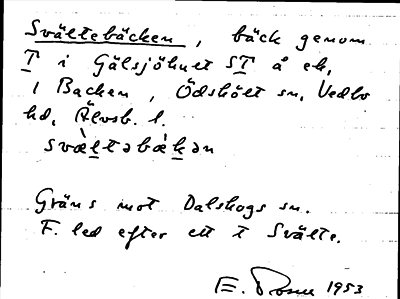 Svältebäcken, bäck genom
T i Gälsjöhult ST å ek,
1 Backen, Ödskölt sn, Vedbo
hd, Älvsb. l.
svæ̀ltəbæ̀kən
Gräns mot Dalskogs sn.
F. led efter ett t Svälte.
E. 1953